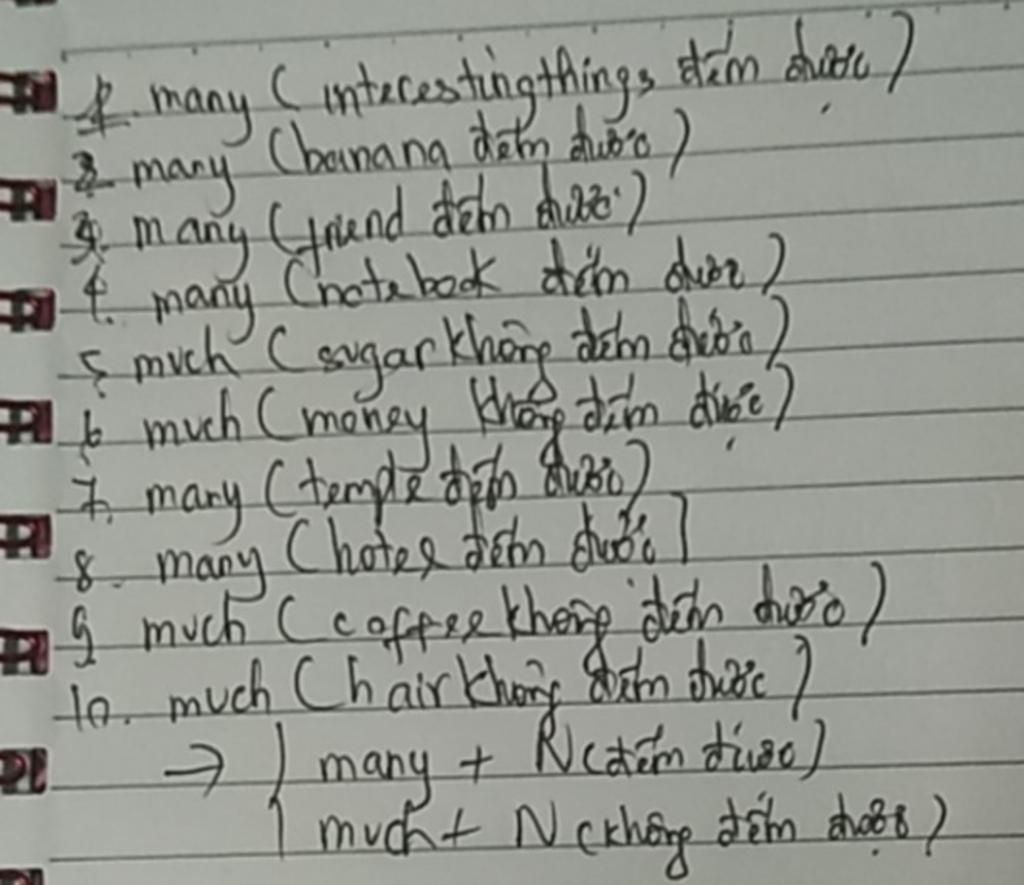 1. many (interestingthings đếm được)
2. many (banana đếm được)
3. many (friend đếm được)
4. many (notebook đếm được)
5. much (sugar không đếm được)
6. much (money không đếm được)
7. many (temple đếm được)
8. many (hotel đếm được)
9. much (coffee không đếm được)
10. much (hair không đếm được)
→ { many + N (đếm được)
{ much + N (không đếm được)